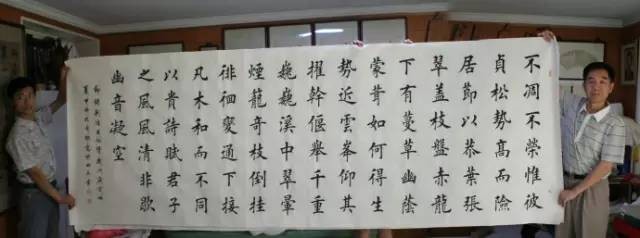 不凋不榮惟彼
貞松勢高而險
居節以恭葉張
翠蓋枝盤赤龍
下有蔓草幽蔭
蒙茸如何得生
勢近雲峯仰其
擢幹偃舉千重
巍巍溪中翠暈
煙籠奇枝倒挂
徘徊變通下接
凡木和而不同
以貴詩賦君子
之風風清非歇
幽音凝空